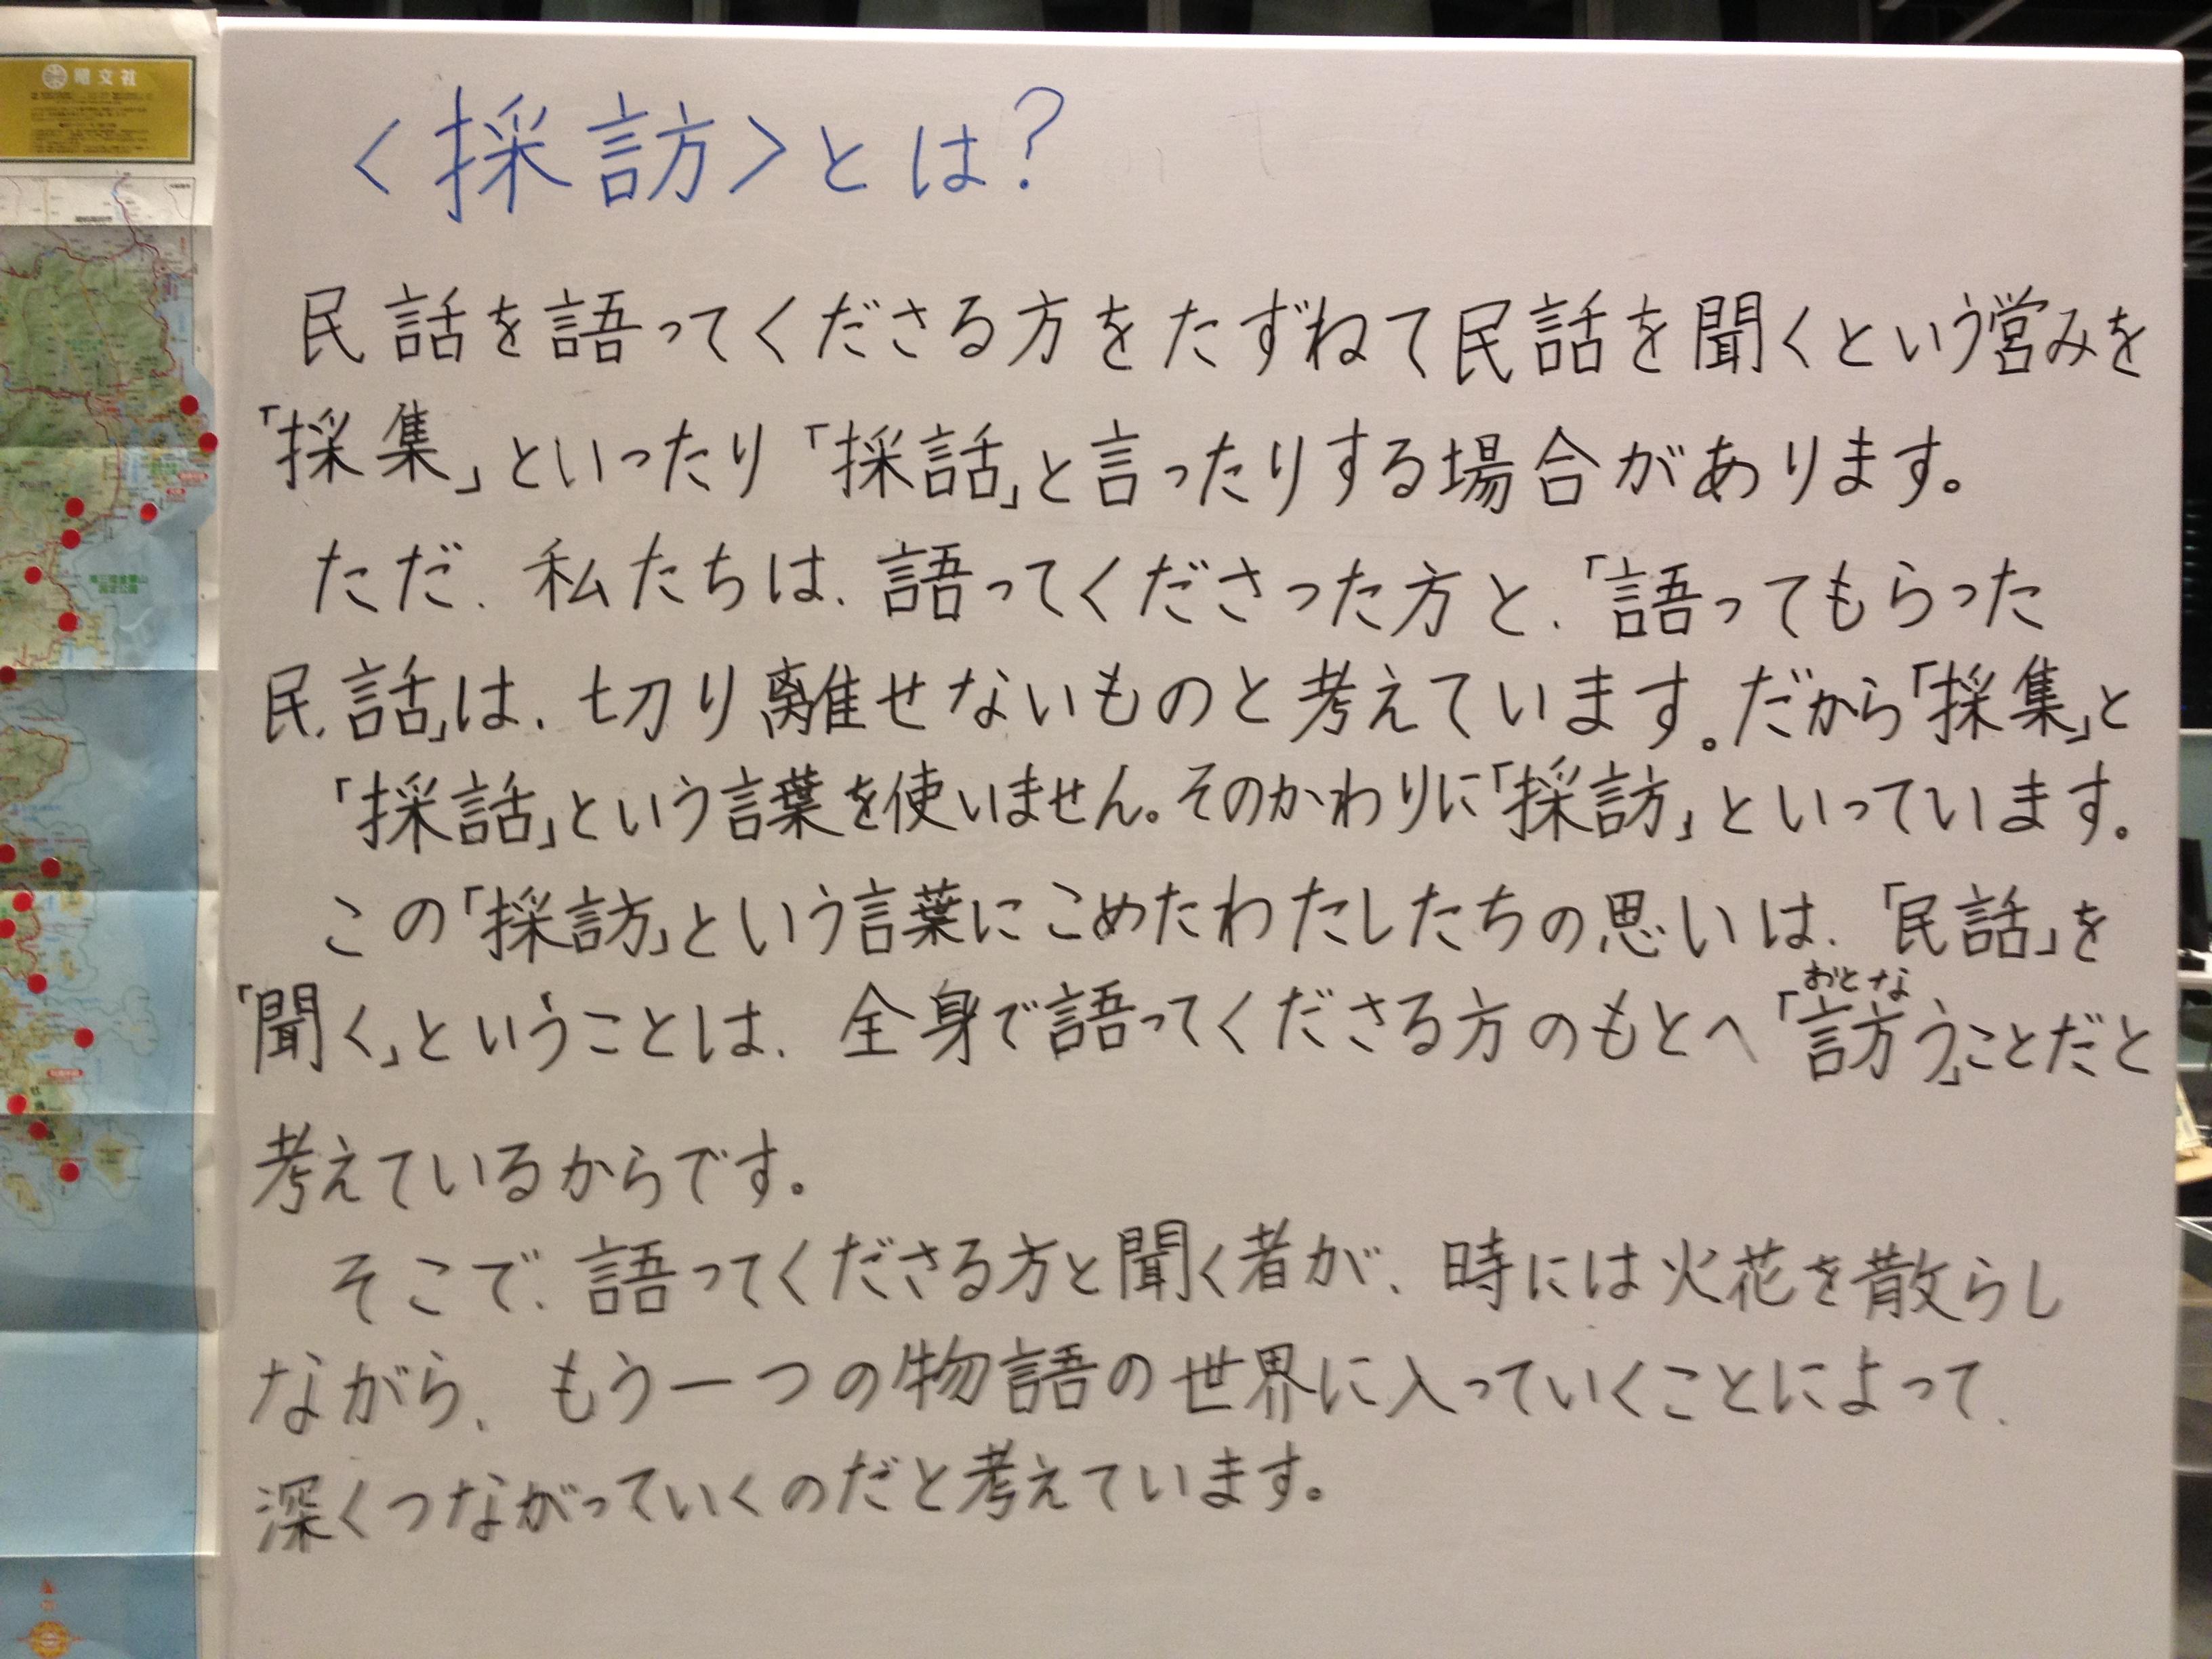 昭文社
〈採訪〉とは?
民話を語ってくださる方をたずねて民話を聞くという営みを
「採集」といったり「採話」と言ったりする場合があります。
ただ、私たちは、語ってくださった方と、「語ってもらった
民話」は、切り離せないものと考えています。だから「採集」と
「採話」という言葉を使いません。そのかわりに「採訪」といっています。
この「採訪」という言葉にこめたわたしたちの思いは、「民話」を
おとな
「聞く」ということは、全身で語ってくださる方のもとへ「訪う」ことだと
考えているからです。
そこで、語ってくださる方と聞く者が、時には火花を散らし
ながら、もう一つの物語の世界に入っていくことによって、
深くつながっていくのだと考えています。